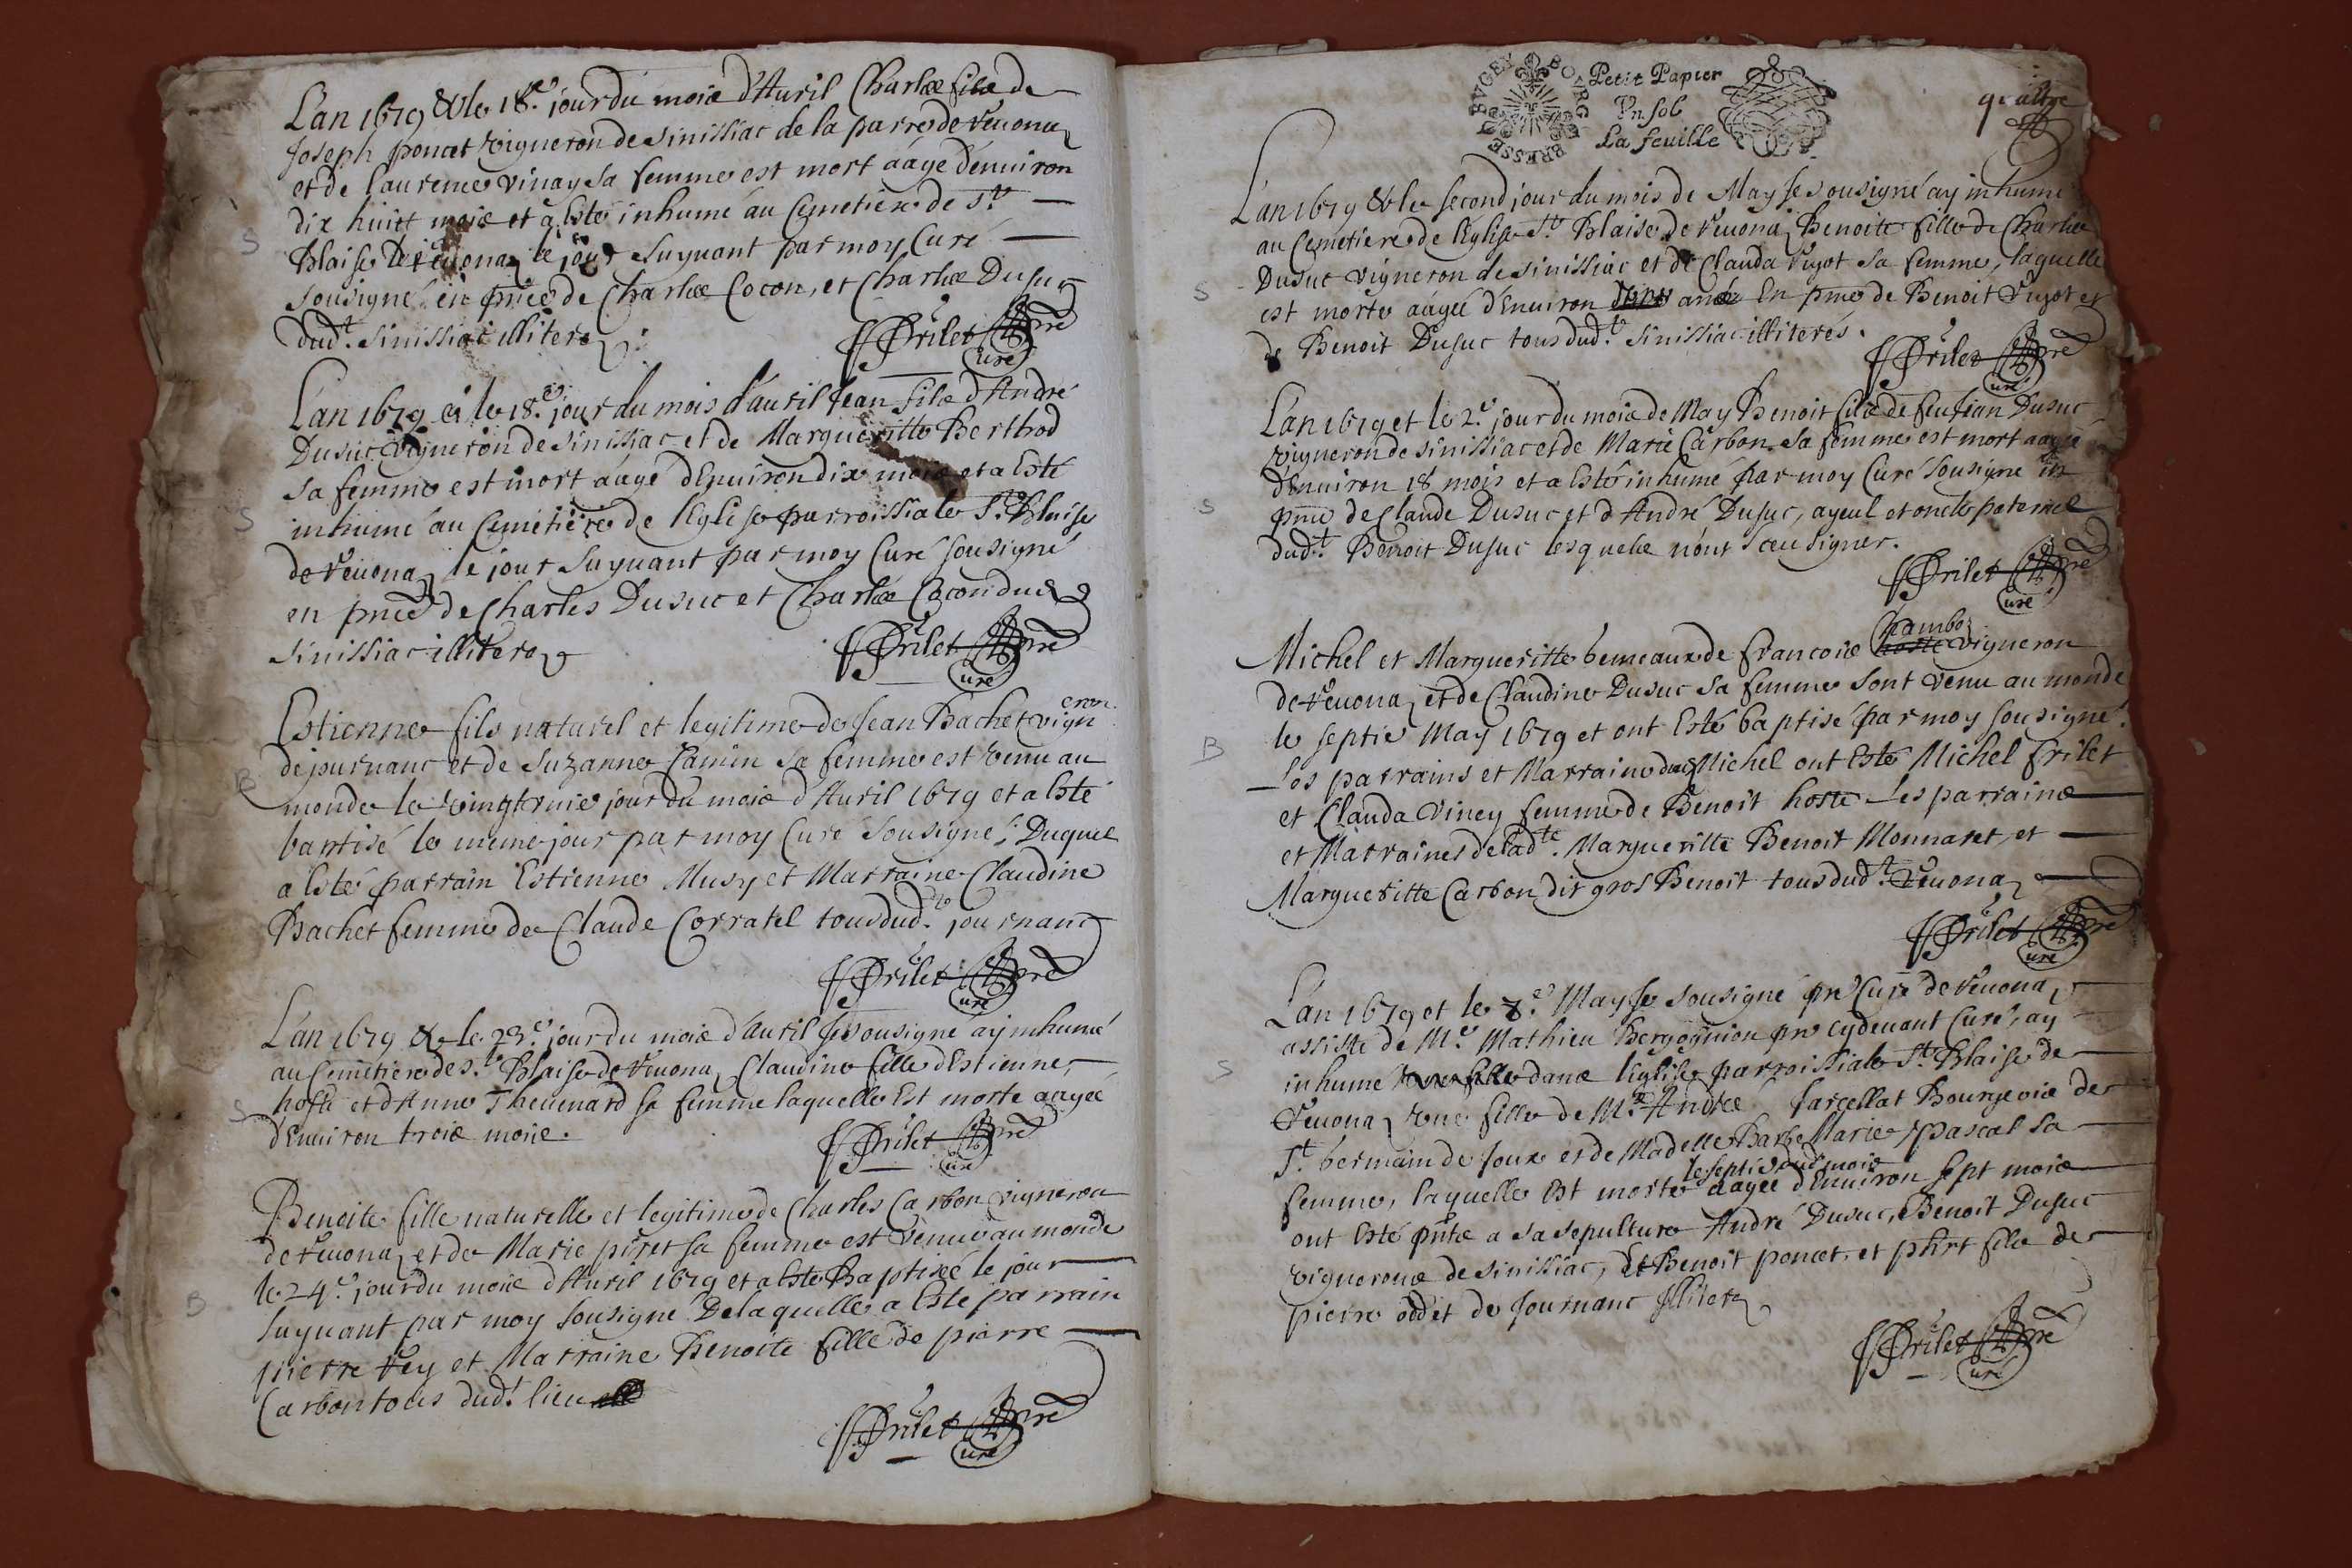 L'an 1679 & le 18.e jour du mois d'Auril Charles fils de
Joseph poncet vigneron de sinissiac de la parre de veuona
et de laurence vinay sa femme est mort aàgé d'enuiron
dix huict mois et à Esté inhumé au Cemetiere de St
Blaise de veuona le jour suyuant par moy Curé
sousigné en pnce de Charles Cocon, et Charles Dusuc
dudt. sinissiac illiterez
S
Frilet pre
Curé
L'an 1679 & le 18.e jour du mois d'auril Jean fils d'André
Dusuc vigneron de sinissiac et de Margueritte Berthod
sa femme est mort aàgé d'Enuiron dix mois et a Esté
inhumé au Cemetiere de l'Eglise parroissiale St. Blaise
de veuona le jour suyuant par moy Curé sousigné
en pnce de Charles Dusuc et Charles Cocon dud
sinissiac illiterez
S
Frilet pre
Curé
Estienne fils naturel et legitime de Jean Bachet vigneron
de journanc et de Suzanne Jamin sa femme est venu au
monde le jour du mois d'Auril 1679 et a Esté
baptisé le mème jour par moy Curé sousigné; Duquel
a Esté parrain Estienne Musy et Marraine Claudine
Bachet femme de Claude Corratel tous dudt. journanc
B
Frilet pre
Curé
L'an 1679 & le 23.e jour du mois d'Auril Je sousigné ay inhumé
au Cemetiere de St. Blaise de Veuona Claudine fille d'Estienne
hoste et d'Anne Theuenard sa femme laquelle Est morte aagée
d'Enuiron trois mois.
S
Frilet pre
Curé
Benoite fille naturelle et legitime de Charles Carbon vigneron
de Veuona et de Marie piret sa femme est venue au monde
le 24.e jour du mois d'Auril 1679 et a Esté Baptisée le jour
suyuant par moy sousigné Delaquelle a Esté parrain
pierre Vey et Marraine Benoite fille de pierre
Carbon tous dudt lieu
B
Frilet pre
Curé
BVGEY BOVRG BRESSE
Petit Papier
Vn sol
La feuille
quattre
L'an 1679 & le second jour du mois de May Je sousigné ay inhumé
au Cemetiere de l'Eglise St. Blaise de Veuona Benoite fille de Charles
Dusuc vigneron de sinissiac et de Clauda Vuyot sa femme, laquelle
est morte aàgée d'Enuiron En pnce de Benoit Vuyot et
de Benoit Dusuc tous dudt. sinissiac illiterés.
S
Frilet pre
Curé
L'an 1679 et le 2.e jour du mois de May Benoit fils de feu Jean Dusuc
vigneron de sinissiac et de Marie Carbon sa femme est mort aagé
d'Enuiron 18 mois et a Esté inhumé par moy Curé sousigné en
pnce de Claude Dusuc et d'André Dusuc, ayeul et oncle paternel
dudt. Benoit Dusuc lesquels n'ont sceu signer.
S
Frilet pre
Curé
Michel et Margueritte bemeaux de Francois Chamboz hoste vigneron
de Veuona et de Claudine Dusuc sa femme sont venu au monde
le septie May 1679 et ont Esté baptisé par moy sousigné.
Les parrains et Marraine dud Michel ont Esté Michel Frilet
et Clauda Viney femme de Benoit hoste Les parrains
et Marraines de ladte. Margueritte Benoit Monnaret, et
Margueritte Carbon dit gros Benoit tous dudt. Veuona
B
Frilet pre
Curé
L'an 1679 et le 8.e May Je sousigné pre Curé de Veuona
assisté de Mre Mathieu Bergognion pre cydeuant Curé, ay
inhumé dans l'Eglise parroissiale St. Blaise de
Veuona une fille de Mre. André Jarcellat Bourgeois de
St. bermain de Joux et de Madelle Barbe Marie pascal sa
femme, laquelle Est morte le septie dud mois aàgée d'Enuiron sept mois
ont Esté pnts a sa sepulture André Dusuc, Benoit Dusuc
vignerons de sinissiac, Et Benoit poncet, et phrt fils de
pierre oddet de journanc Illiterez
S
Frilet pre
Curé